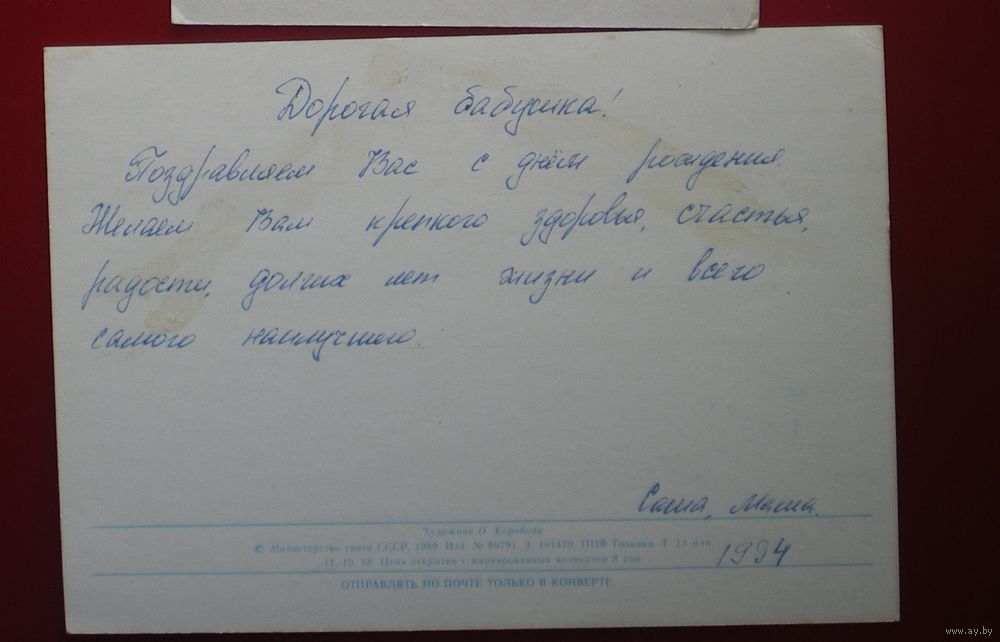 Дорогая бабушка!
Поздравляем Вас с днём рождения.
Желаем Вам крепкого здоровья, счастья,
радости, долгих лет жизни и всего
самого наилучшего.
Саша, Маша.
Художник О. Коробова
© Министерство связи СССР, 1989. Изд. № 89791. З. 101470. ППФ Гознака. Т. 13 млн.
11. 10. 88. Цена открытки с маркированным конвертом 8 коп.
1994
ОТПРАВЛЯТЬ ПО ПОЧТЕ ТОЛЬКО В КОНВЕРТЕ
www.ay.by